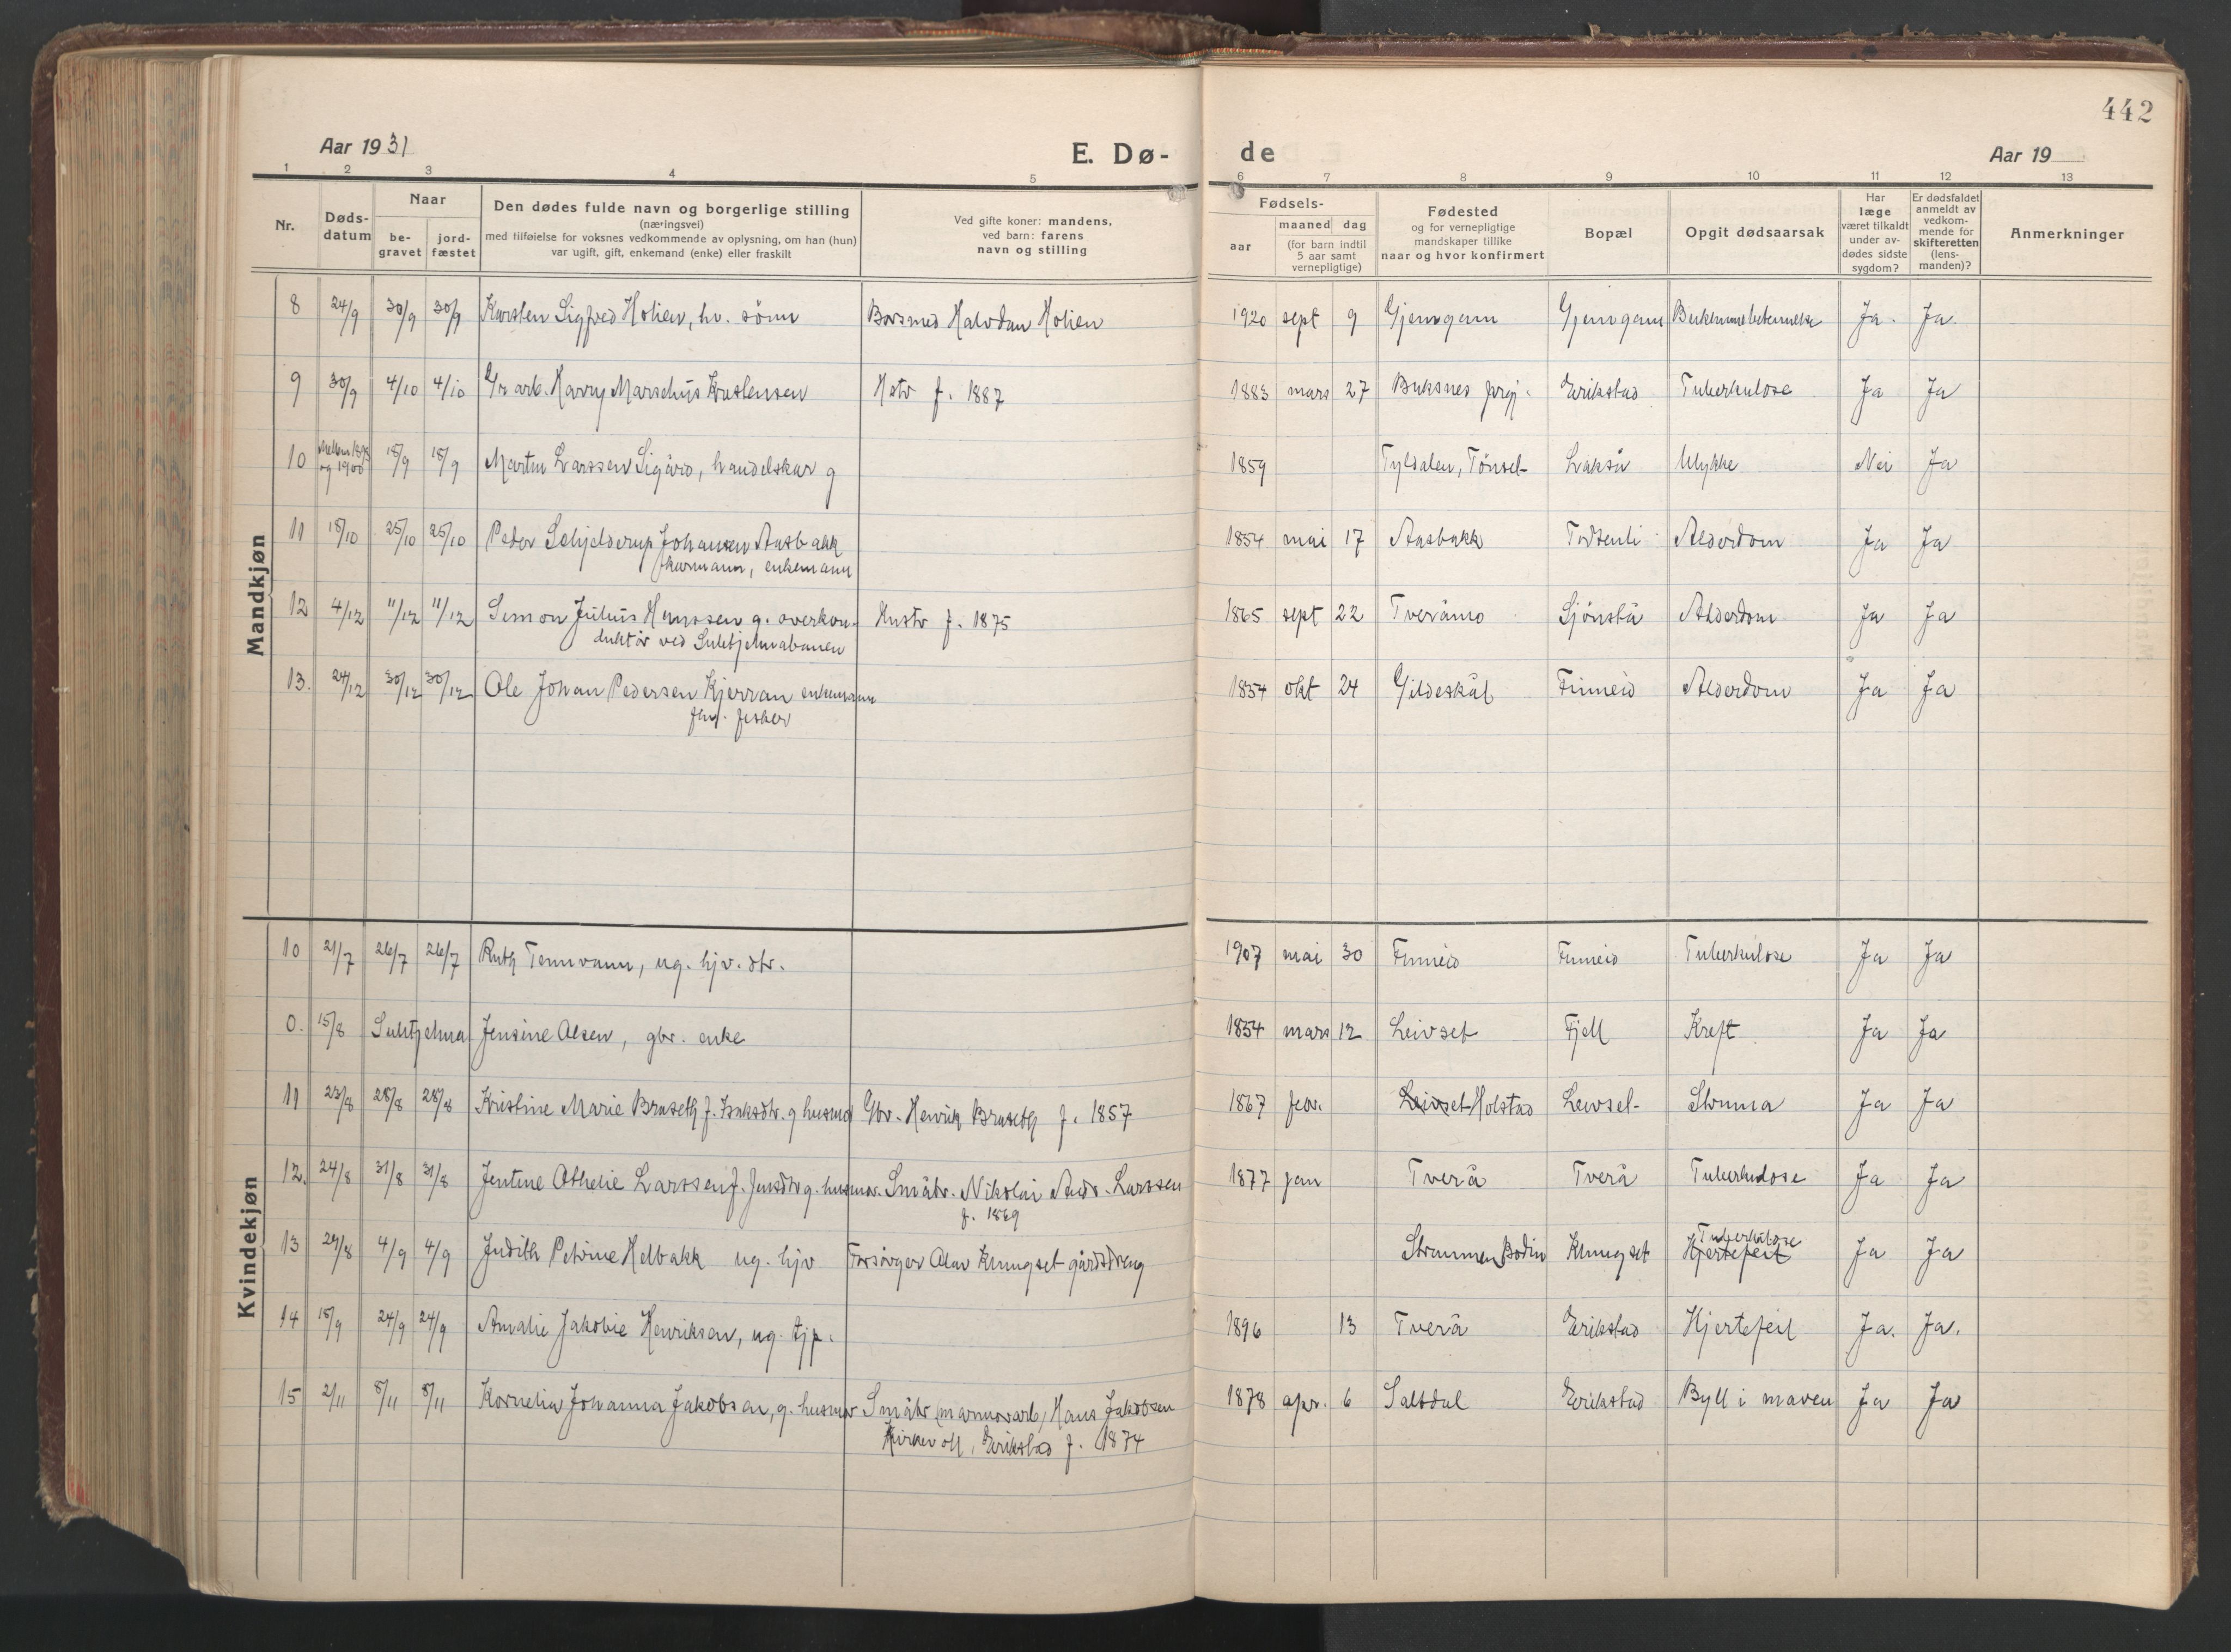 442
Aar 1931
E. Dø-
de
Aar 19
1 2 3 4 5 6 7 8 9 10 11 12 13
Nr.
Døds-
datum
Naar
be-
gravet
jord-
fæstet
Den dødes fulde navn og borgerlige stilling
(næringsvei)
med tilføielse for voksnes vedkommende av oplysning, om han (hun)
var ugift, gift, enkemand (enke) eller fraskilt
Ved gifte koner: mandens,
ved barn: farens
navn og stilling
Fødsels-
aar
maaned dag
(for barn indtil
5 aar samt
vernepligtige)
Fødested
og for vernepligtige
mandskaper tillike
naar og hvor konfirmert
Bopæl
Opgit dødsaarsak
Har
læge
været tilkaldt
under av-
dødes sidste
sygdom?
Er dødsfaldet
anmeldt av
vedkom-
mende for
skifteretten
(lens-
manden)?
Anmerkninger
Mandkjøn
8 24/9 30/9 30/9 Karsten Sigfred Holien, hv. sönn Halvdan Holien 1920 sept 9 Gjemgam Gjemgam Ja. Ja.
9 30/9 4/10 4/10 Gr. arb. Harry Marselius Kristensen Hstr f. 1887 1883 mars 27 Buksnes prgj. Erikstad Tuberkulose Ja Ja
10 Mellem 1898 og 1900 18/9 18/9 Martin Larssen Sigård, handelskar g 1859 Tyldalen, Tönset Lakså Ulykke Nei Ja
11 18/10 25/10 25/10 Peder Schjelderup Johansen Aasbakk 1854 mai 17 Aasbakk Todsenli Alderdom Ja Ja
kårmann, enkemann
12 4/12 11/12 11/12 Simon Julius Hanssen g. overkon- Hustr f. 1875 1865 sept 22 Tveråmo Sjönstå Alderdom Ja Ja
duktör ved Sulitjelmabanen
13. 24/12 30/12 30/12 Ole Johan Pedersen Kjerran enkemann 1854 okt 24 Gildeskål Finneid Alderdom Ja Ja
fhv. fisker
Kvindekjøn
10 21/7 26/7 26/7 Ruth Tennvann, ug. hjv. dtr. 1907 mai 30 Finneid Finneid Tuberkulose Ja Ja
0. 15/8 Sulitjelma Jensine Olsen, gbr. enke 1854 mars 12 Leivset Fjell Kreft Ja Ja
11 23/8 28/8 28/8 Kristine Marie Braseth f. Isaksdtr. g husmor Gbr. Henrik Braseth f. 1857 1867 febr. Leivset Holstad Leivset Struma Ja Ja
12. 24/8 31/8 31/8 Jentine Athelie Larssen f. Jensdtr g. husmor. Småbr. Nikolai Andr. Larssen 1877 jan Tverå Tverå Tuberkulose Ja Ja
f. 1869
13 29/8 4/9 4/9 Judith Petrine Helbakk ug. hjv Forsörger Olav Klungset gårdsdreng Strömmen Bodin Klungset Hjertefeil Tuberkulose Ja Ja
14 15/9 24/9 24/9 Amalie Jakobie Henriksen, ug. tjp. 1896 13 Tverå Erikstad Hjertefeil Ja. Ja.
15 2/11 8/11 8/11 Kornelia Johanna Jakobsen, g. husmor Småbr (marmorarb) Hans Jakobsen 1878 apr. 6 Saltdal Erikstad Byll i maven Ja Ja
Kirkevoll, Erikstad f. 1874